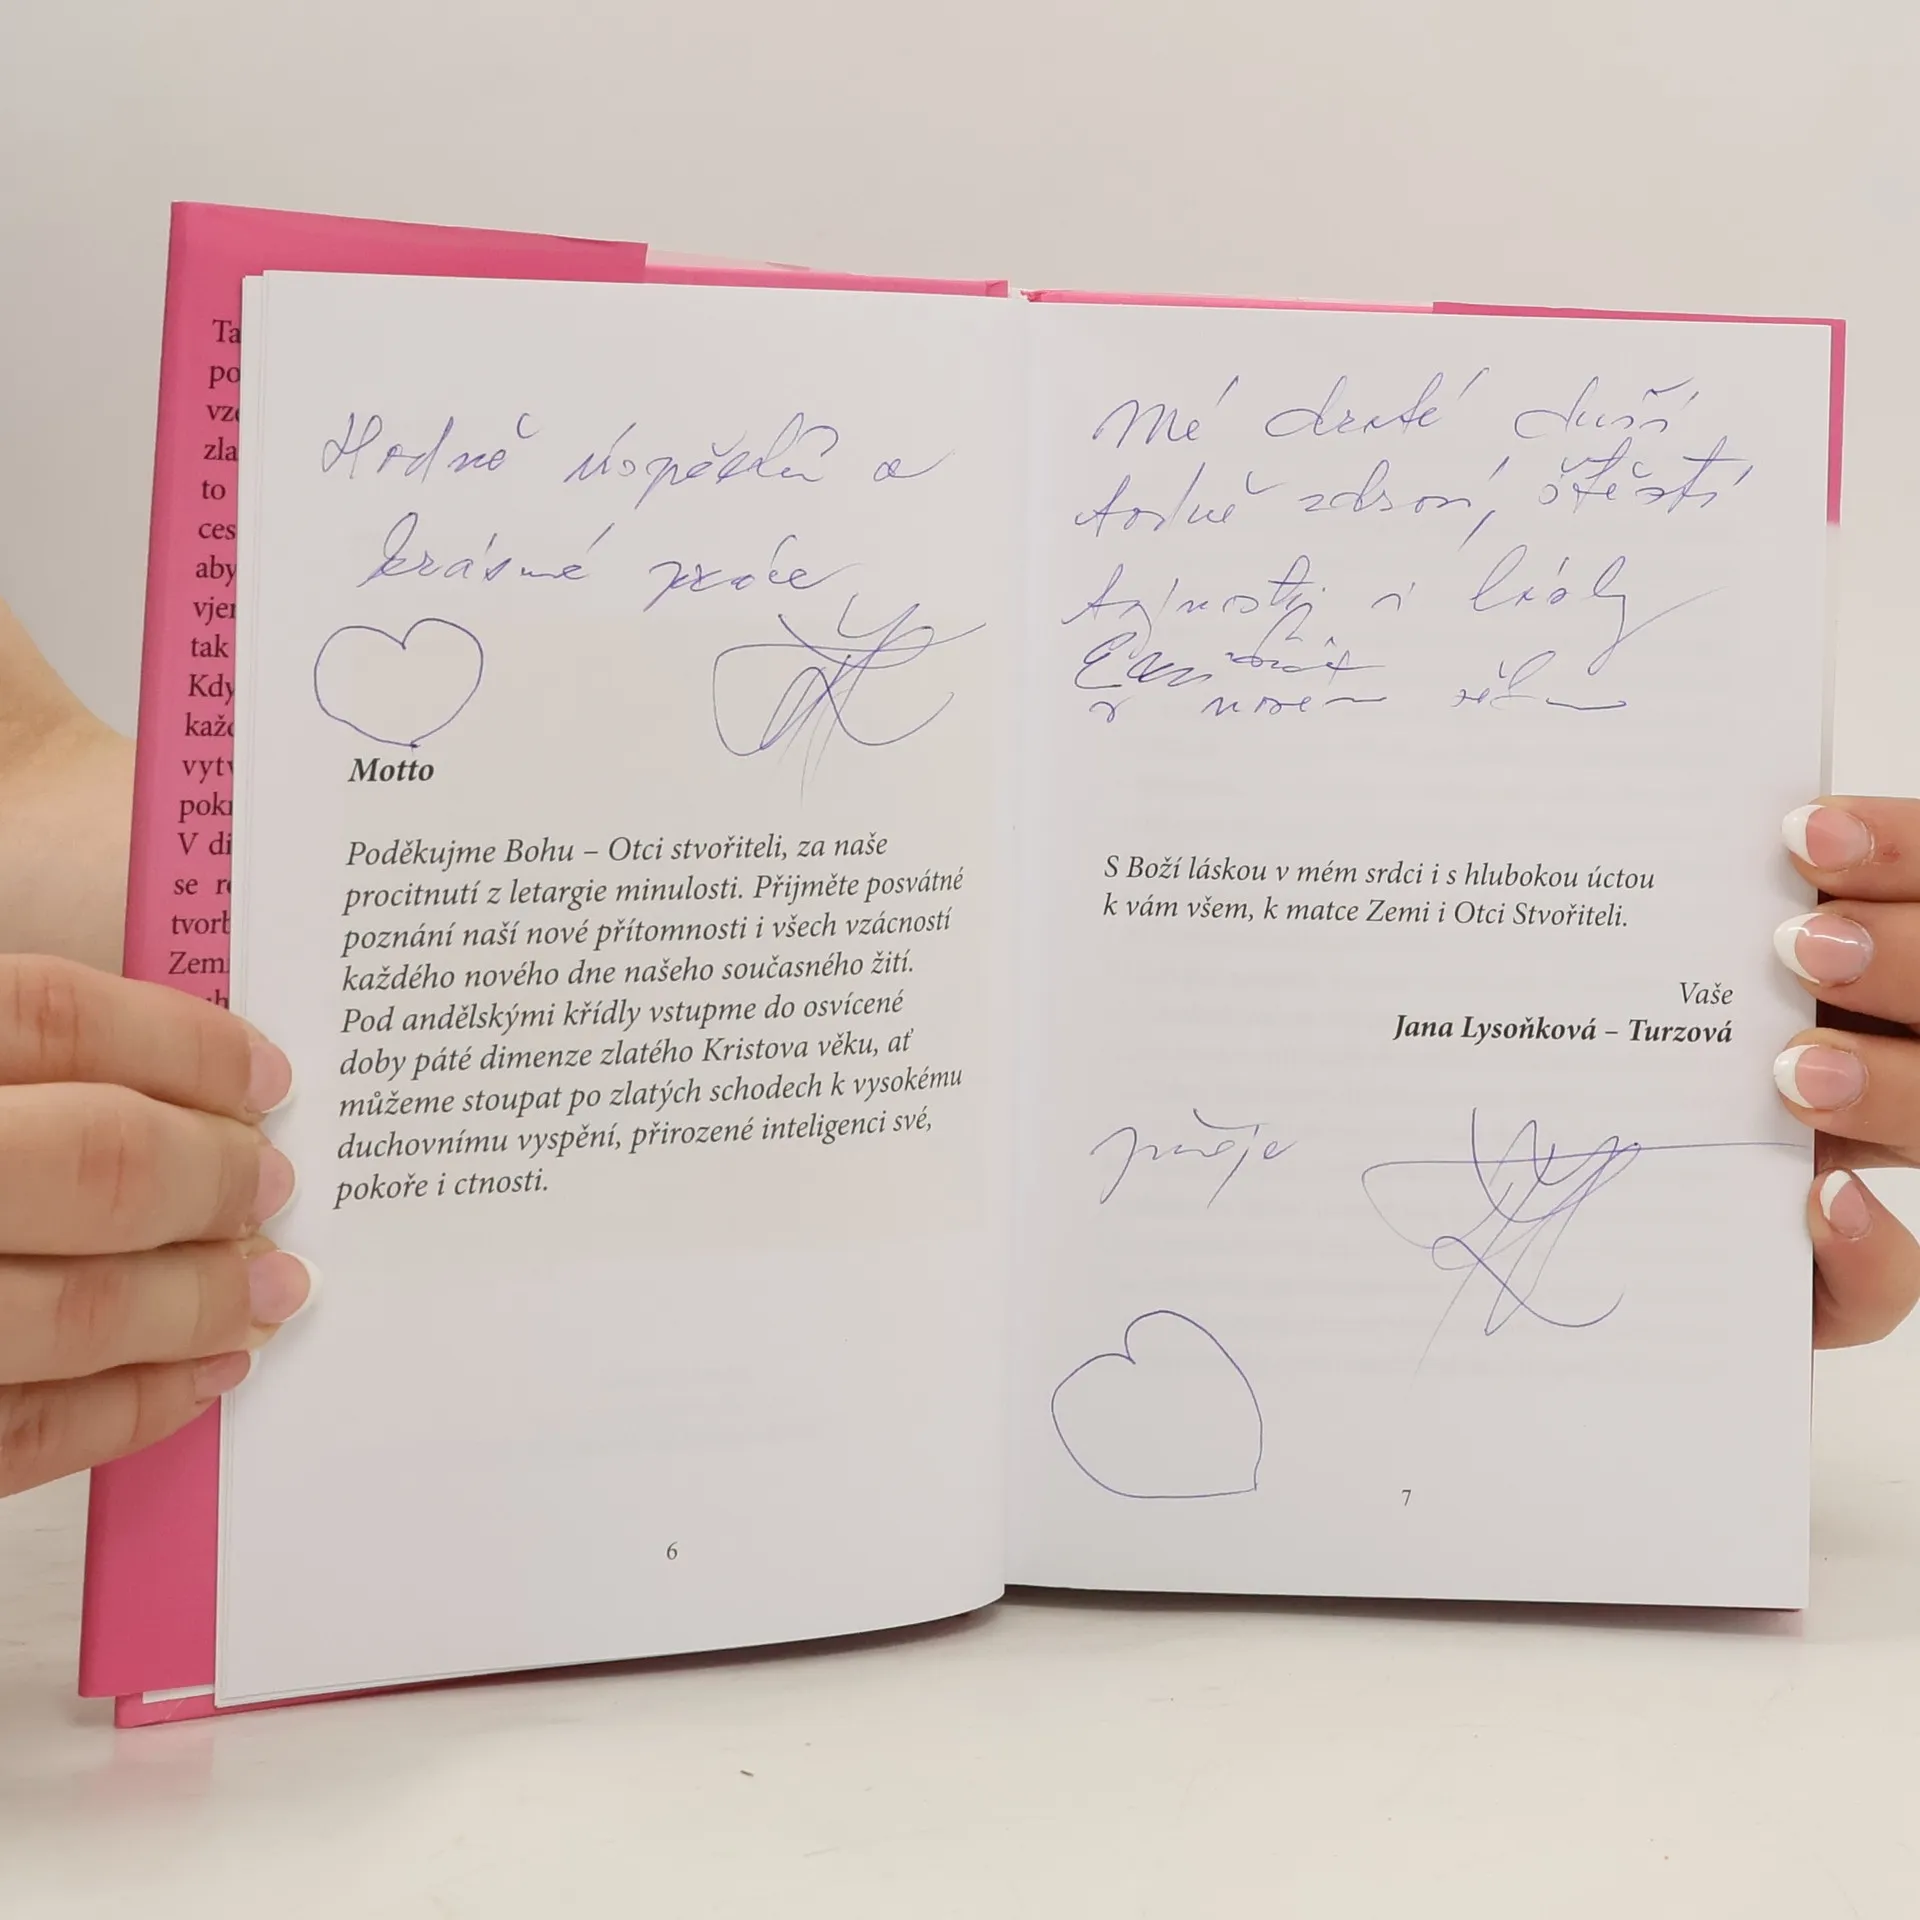 Ta
po
vzc
zla
to
ces
aby
vjer
tak
Kdy
každ
vytv
pokr
V di
se r
tvorb
Zem
Hodně úspěchů a
krásné práce
Motto
Poděkujme Bohu – Otci stvořiteli, za naše
procitnutí z letargie minulosti. Přijměte posvátné
poznání naší nové přítomnosti i všech vzácností
každého nového dne našeho současného žití.
Pod andělskými křídly vstupme do osvícené
doby páté dimenze zlatého Kristova věku, ať
můžeme stoupat po zlatých schodech k vysokému
duchovnímu vyspění, přirozené inteligenci své,
pokoře i ctnosti.
6
Mé drahé duši
hodně zdraví, štěstí
hojnosti i lásky
v novém
S Boží láskou v mém srdci i s hlubokou úctou
k vám všem, k matce Zemi i Otci Stvořiteli.
Vaše
Jana Lysoňková – Turzová
přeje
7